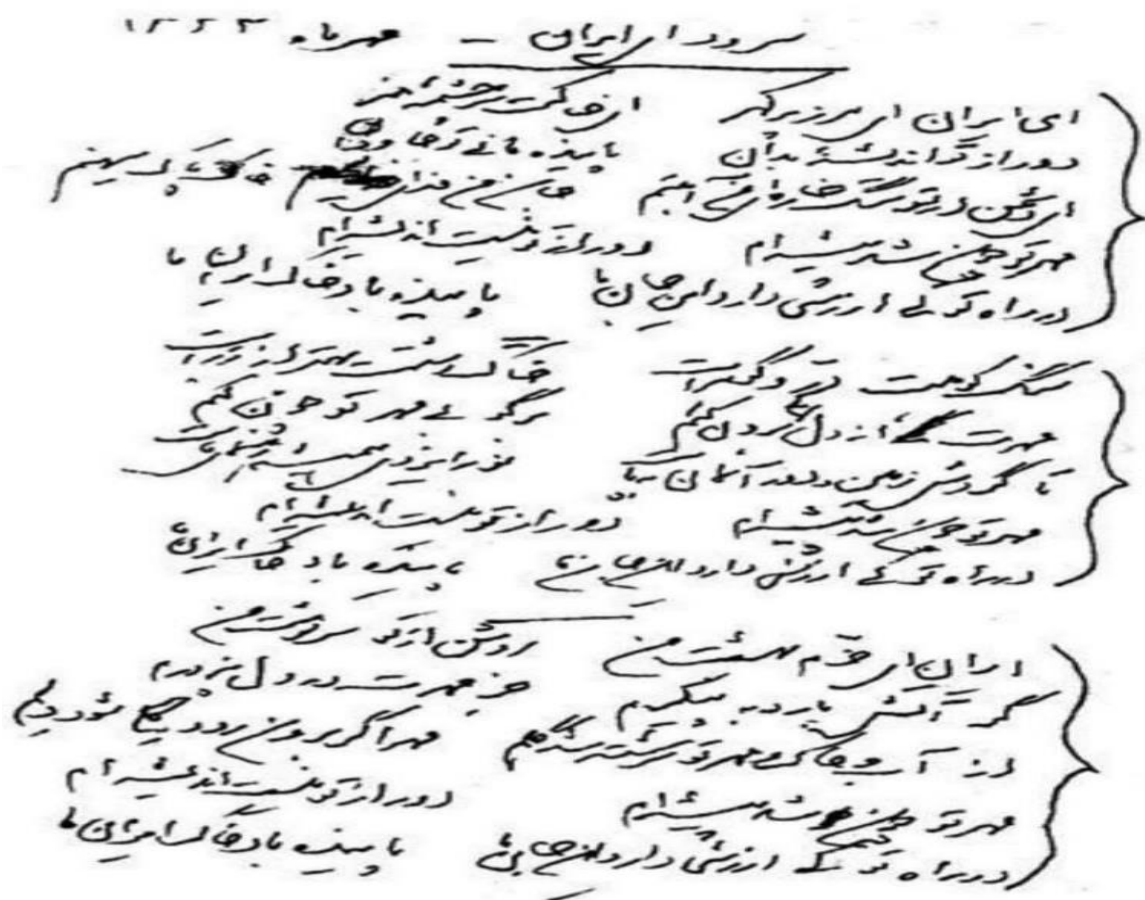 سرود ای ایران - مهرماه ۱۳۲۳
ای ایران ای مرز پرگهر ای خاکت سرچشمه هنر
دور از تو اندیشه بدان پاینده مانی و جاودان
ای دشمن ار تو سنگ خاره‌ای من آهنم جان من فدای خاک پاک میهنم
مهر تو چون شد پیشه‌ام دور از تو نیست اندیشه‌ام
در راه تو کی ارزشی دارد این جان ما پاینده باد خاک ایران ما
سنگ کوهت در و گوهر است خاک دشتت بهتر از زر است
مهرت از دل کی برون کنم برگو بی مهر تو چون کنم
تا گردش زمین و دور آسمان بپاست نور ایزدی همیشه رهنمای ماست
مهر تو چون شد پیشه‌ام دور از تو نیست اندیشه‌ام
در راه تو کی ارزشی دارد این جان ما پاینده باد خاک ایران ما
ایران ای خرم بهشت من روشن از تو سرنوشت من
گر آتش بارد به پیکرم جز مهرت در دل نپرورم
از آب و خاک و مهر تو سرشته شد گلم مهر اگر برون رود تهی شود دلم
مهر تو چون شد پیشه‌ام دور از تو نیست اندیشه‌ام
در راه تو کی ارزشی دارد این جان ما پاینده باد خاک ایران ما